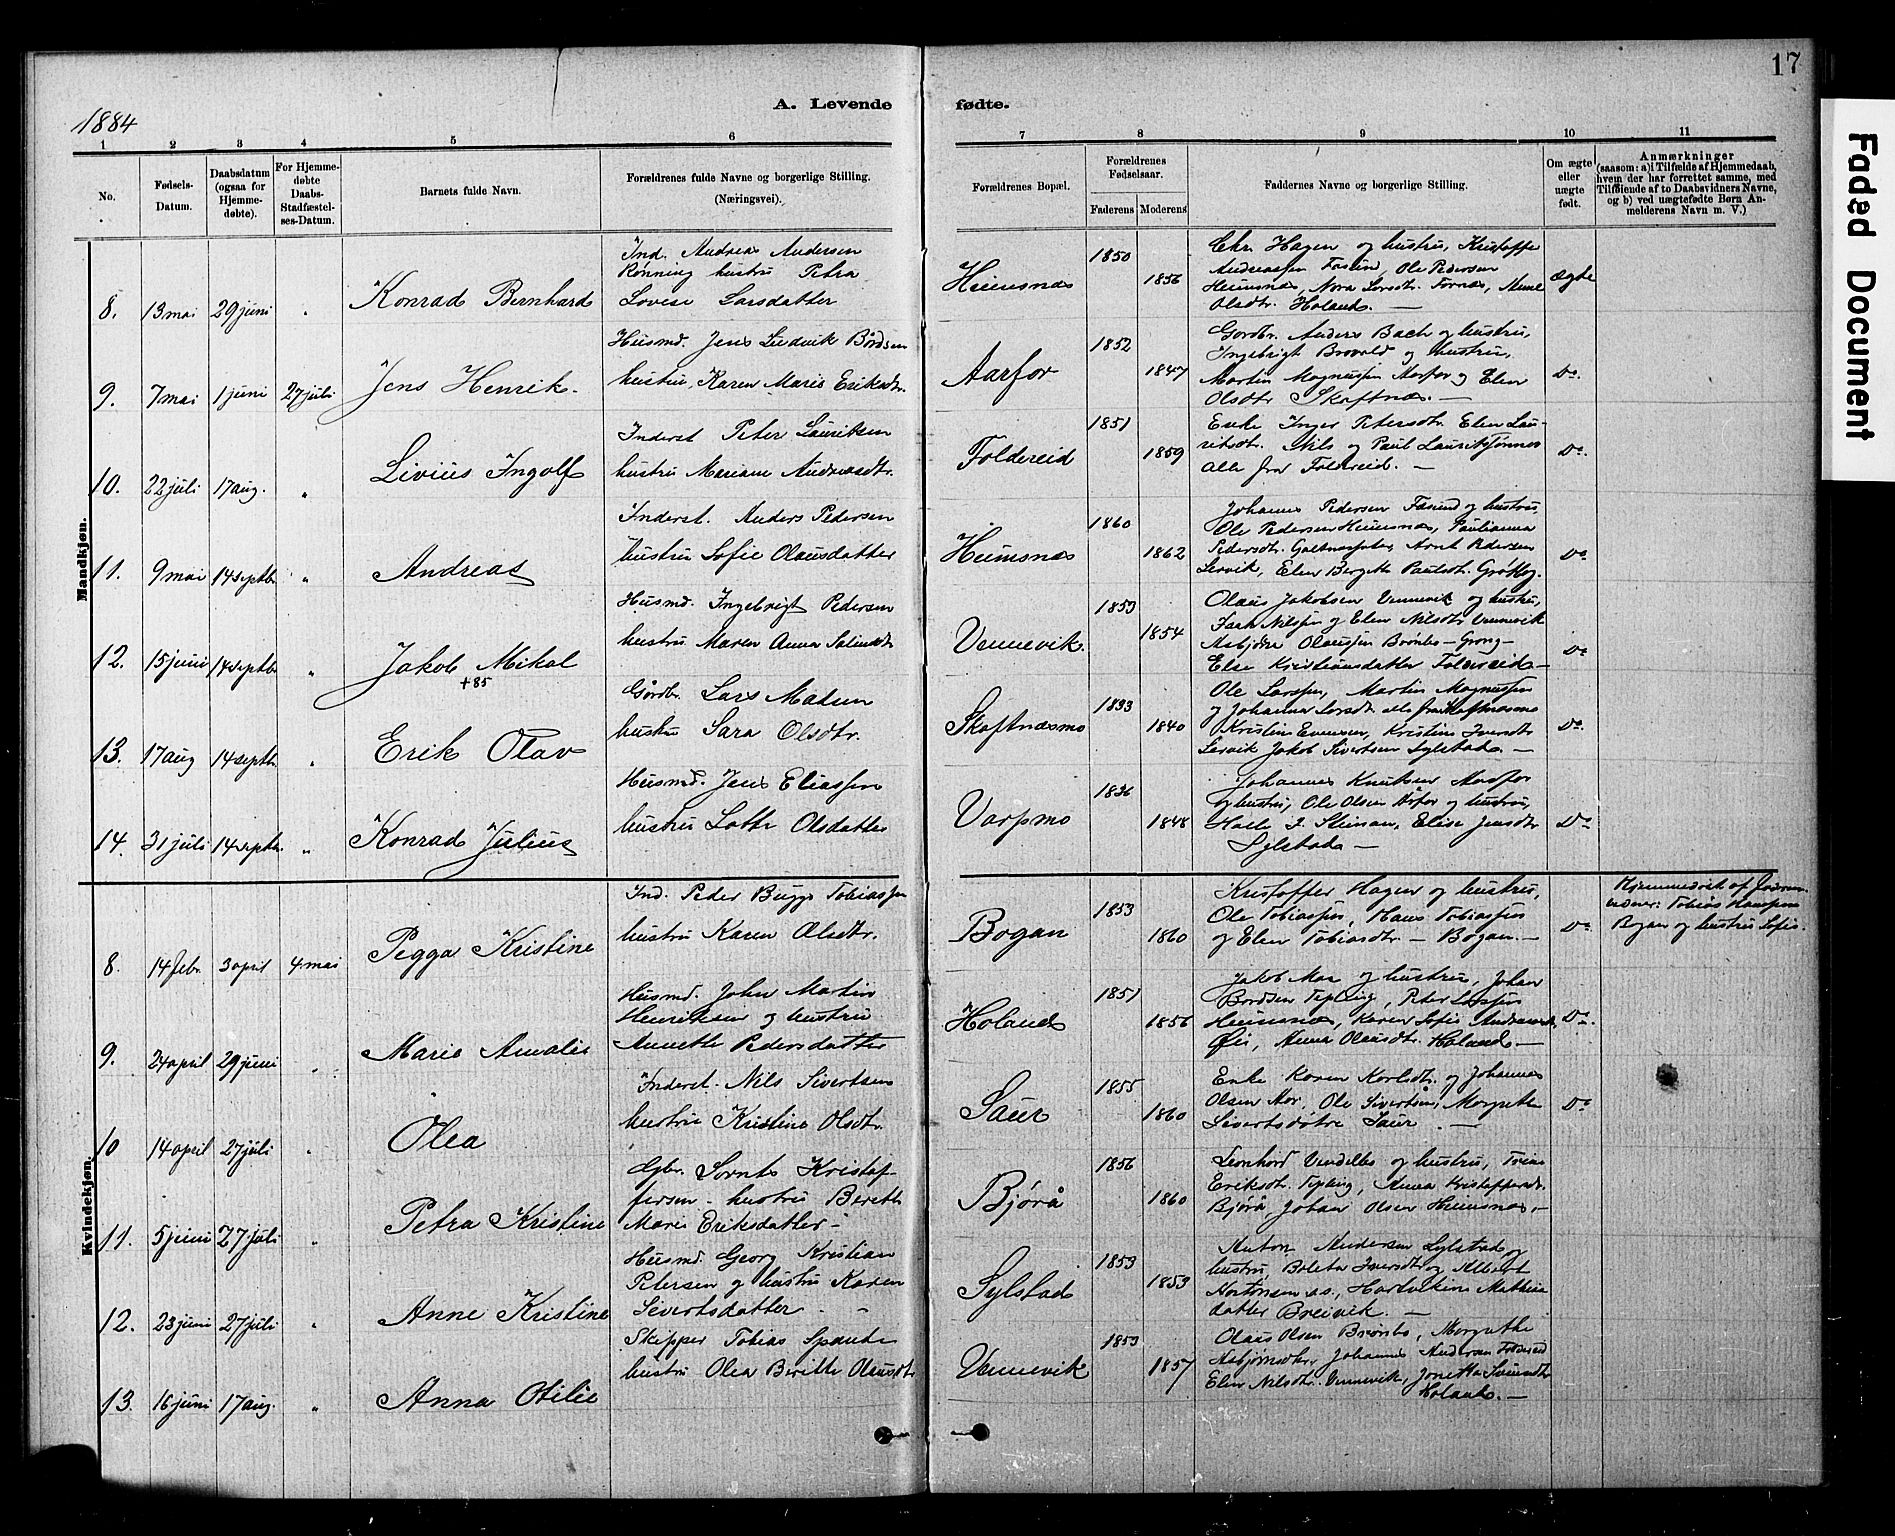 17
1884
A. Levende fødte.
1 2 3 4 5 6 7 8 9 10 11
No.
Fødsels-Datum.
Daabsdatum (ogsaa for Hjemmedøbte).
For Hjemmedøbte Daabs-Stadfæstelses-Datum.
Barnets fulde Navn.
Forældrenes fulde Navne og borgerlige Stilling.
(Næringsvei).
Forældrenes Bopæl.
Forældrenes Fødselsaar.
Faderens Moderens
Faddernes Navne og borgerlige Stilling.
Om ægte eller uægte født.
Anmærkninger
(saasom: a) i Tilfælde af Hjemmedaab,
hvem der har forrettet samme, med
Tilføiende af to Daabsvidners Navne,
og b) ved uægtefødte Børn Anmelderens Navn m. V.)
Mandkjøn.
8. 13 mai 29 juni " Konrad Bernhard
Ind. Andreas Andersen
Rønning hustru Petra
Lovise Larsdatter
Heimsnæs 1850 1856
Chr. Hagen og hustru, Kristoffer
Andreassen Fasund, Ole Pedersen
Heimsnæs, Nora Larsdtr. Tørnæs,
Olsdtr. Holand. —
ægte
9. 7 mai 1 juni 27 juli Jens Henrik
Husmd. Jens Ludvik Bårdsen
hustru, Karen Marie Eriksdtr.
Aarfor 1852 1847
Gordbr. Anders Bach og hustru,
Ingebrigt Brovold og hustru,
Martin Magnussen Aarfor og Elen
Olsdtr Skoftnæs. —
Do.
10. 22 juli 17 aug. " Livius Ingolf
Inderst. Peter Lauritsen
hustru Mariane Andreasdtr.
Foldereid 1851 1859
Enke Inger Petersdtr. Elen Lauritsdtr. Nils og Paul Laurits
alle fra Foldereid. —
Do.
11. 9 mai 14 septbr. " Andreas
Inderst. Anders Pedersen
hustru Sofie Olausdatter
Heimsnæs 1860 1862
Johannes Pedersen Fasund og hustru,
Ole Pedersen Heimsnæs, Paulianna
Pedersdtr. Arnt Pedersen
Lervik, Elen Bergitte Paulsdtr.
Do
12. 15 juni 14 septbr. " Jakob Mikal
+85
Husmd. Ingebrigt Pedersen
hustru Maren Anna
Vennevik 1853 1854
Olaus Jakobsen Vennevik og hustru,
Nilssen og Elen Nilsdtr Vennevik
Asbjørn Olaussen Brønbo — Grong —
Else Kristiansdatter Foldereid —
Do
13. 17 aug 14 septbr. " Erik Olav
Gårdbr. Lars Matsen
hustru Sara Olsdtr.
Skoftnæsmo 1833 1840
Ole Larssen, Martin Magnussen
og Johanna Larsdtr. alle fra Skoftnæsmo
Kristine Evensen, Kristine Iversdtr
Lervik Jakob Sivertsen Sylstad. —
Do.
14. 31 juli 14 septbr. " Konrad Julius
Husmd. Jens Eliassen
hustru Lotte Olsdatter
Varpmo 1836 1848
Johannes Knutsen Aarfor
og hustru, Ole Olsen Årfor og hustru,
Elise Jensdtr
Sylstad —
Do
Kvindekjøn.
8. 14 febr. 3 april 4 mai Pegga Kristine
Ind. Peder Bugge Tobiassen
hustru Karen Olsdtr.
Bogan 1853 1860
Kristoffer Hagen og hustru,
Ole Tobiassen, Hans Tobiassen
og Elen Tobiasdtr. — Bogan. —
Do
Hjemmedøbt af
Tobias Hanssen
Bogan og hustru Sofie.
9. 24 april 29 juni " Marie Amalie
Husmd. John Martin
Henriksen og hustru
Annette Pedersdatter
Holand 1851 1856
Jakob Moe og hustru, Johan
Bordsen Tepling, Peter Larssen
Heimsnæs, Karen Sofie Andreasdtr
Øie, Anna Olausdtr. Holand —
Do.
10 14 april 27 juli " Olea
Inderst. Nils Sivertsen
hustru Kristine Olsdtr.
Saur 1855 1860
Enke Karen Karlsdtr. og Johannes
Olsen Mor, Ole Sivertsen, Margrethe
Sivertsdøtre Saur. —
Do
11. 5 juni 27 juli " Petra Kristine
Gbr. Lornts Kristoffersen — hustru Berett
Marie Eriksdatter —
Bjørå 1856 1860
Leonhard Vendelbo og hustru, Trine
Eriksdtr. Tepling, Anna Kristoffersdtr.
Bjørå, Johan Olsen Heimsnæs. —
12. 23 juni 27 juli " Anne Kristine
Husmd. Georg Kristian
Petersen og hustru Karen
Sivertsdatter —
Sylstad 1853 1853
Anton Andersen Sylstad og
hustru, Boleta Iversdtr og Albert
Mortensen as., Hartvikine Mathiasdatter Breivik. —
13. 16 juni 17 aug. " Anna Otilie
Skipper Tobias Spande
hustru Olea Beritte Olausdtr
Vennevik 1853 1857
Olaus Olsen Brønbo, Margrethe
Asbjørnsdtr, Johannes Andersen Foldereid
Elen Nilsdtr. Vennevik, Jonetta Sivertsdtr
Holand. —
Faded Document